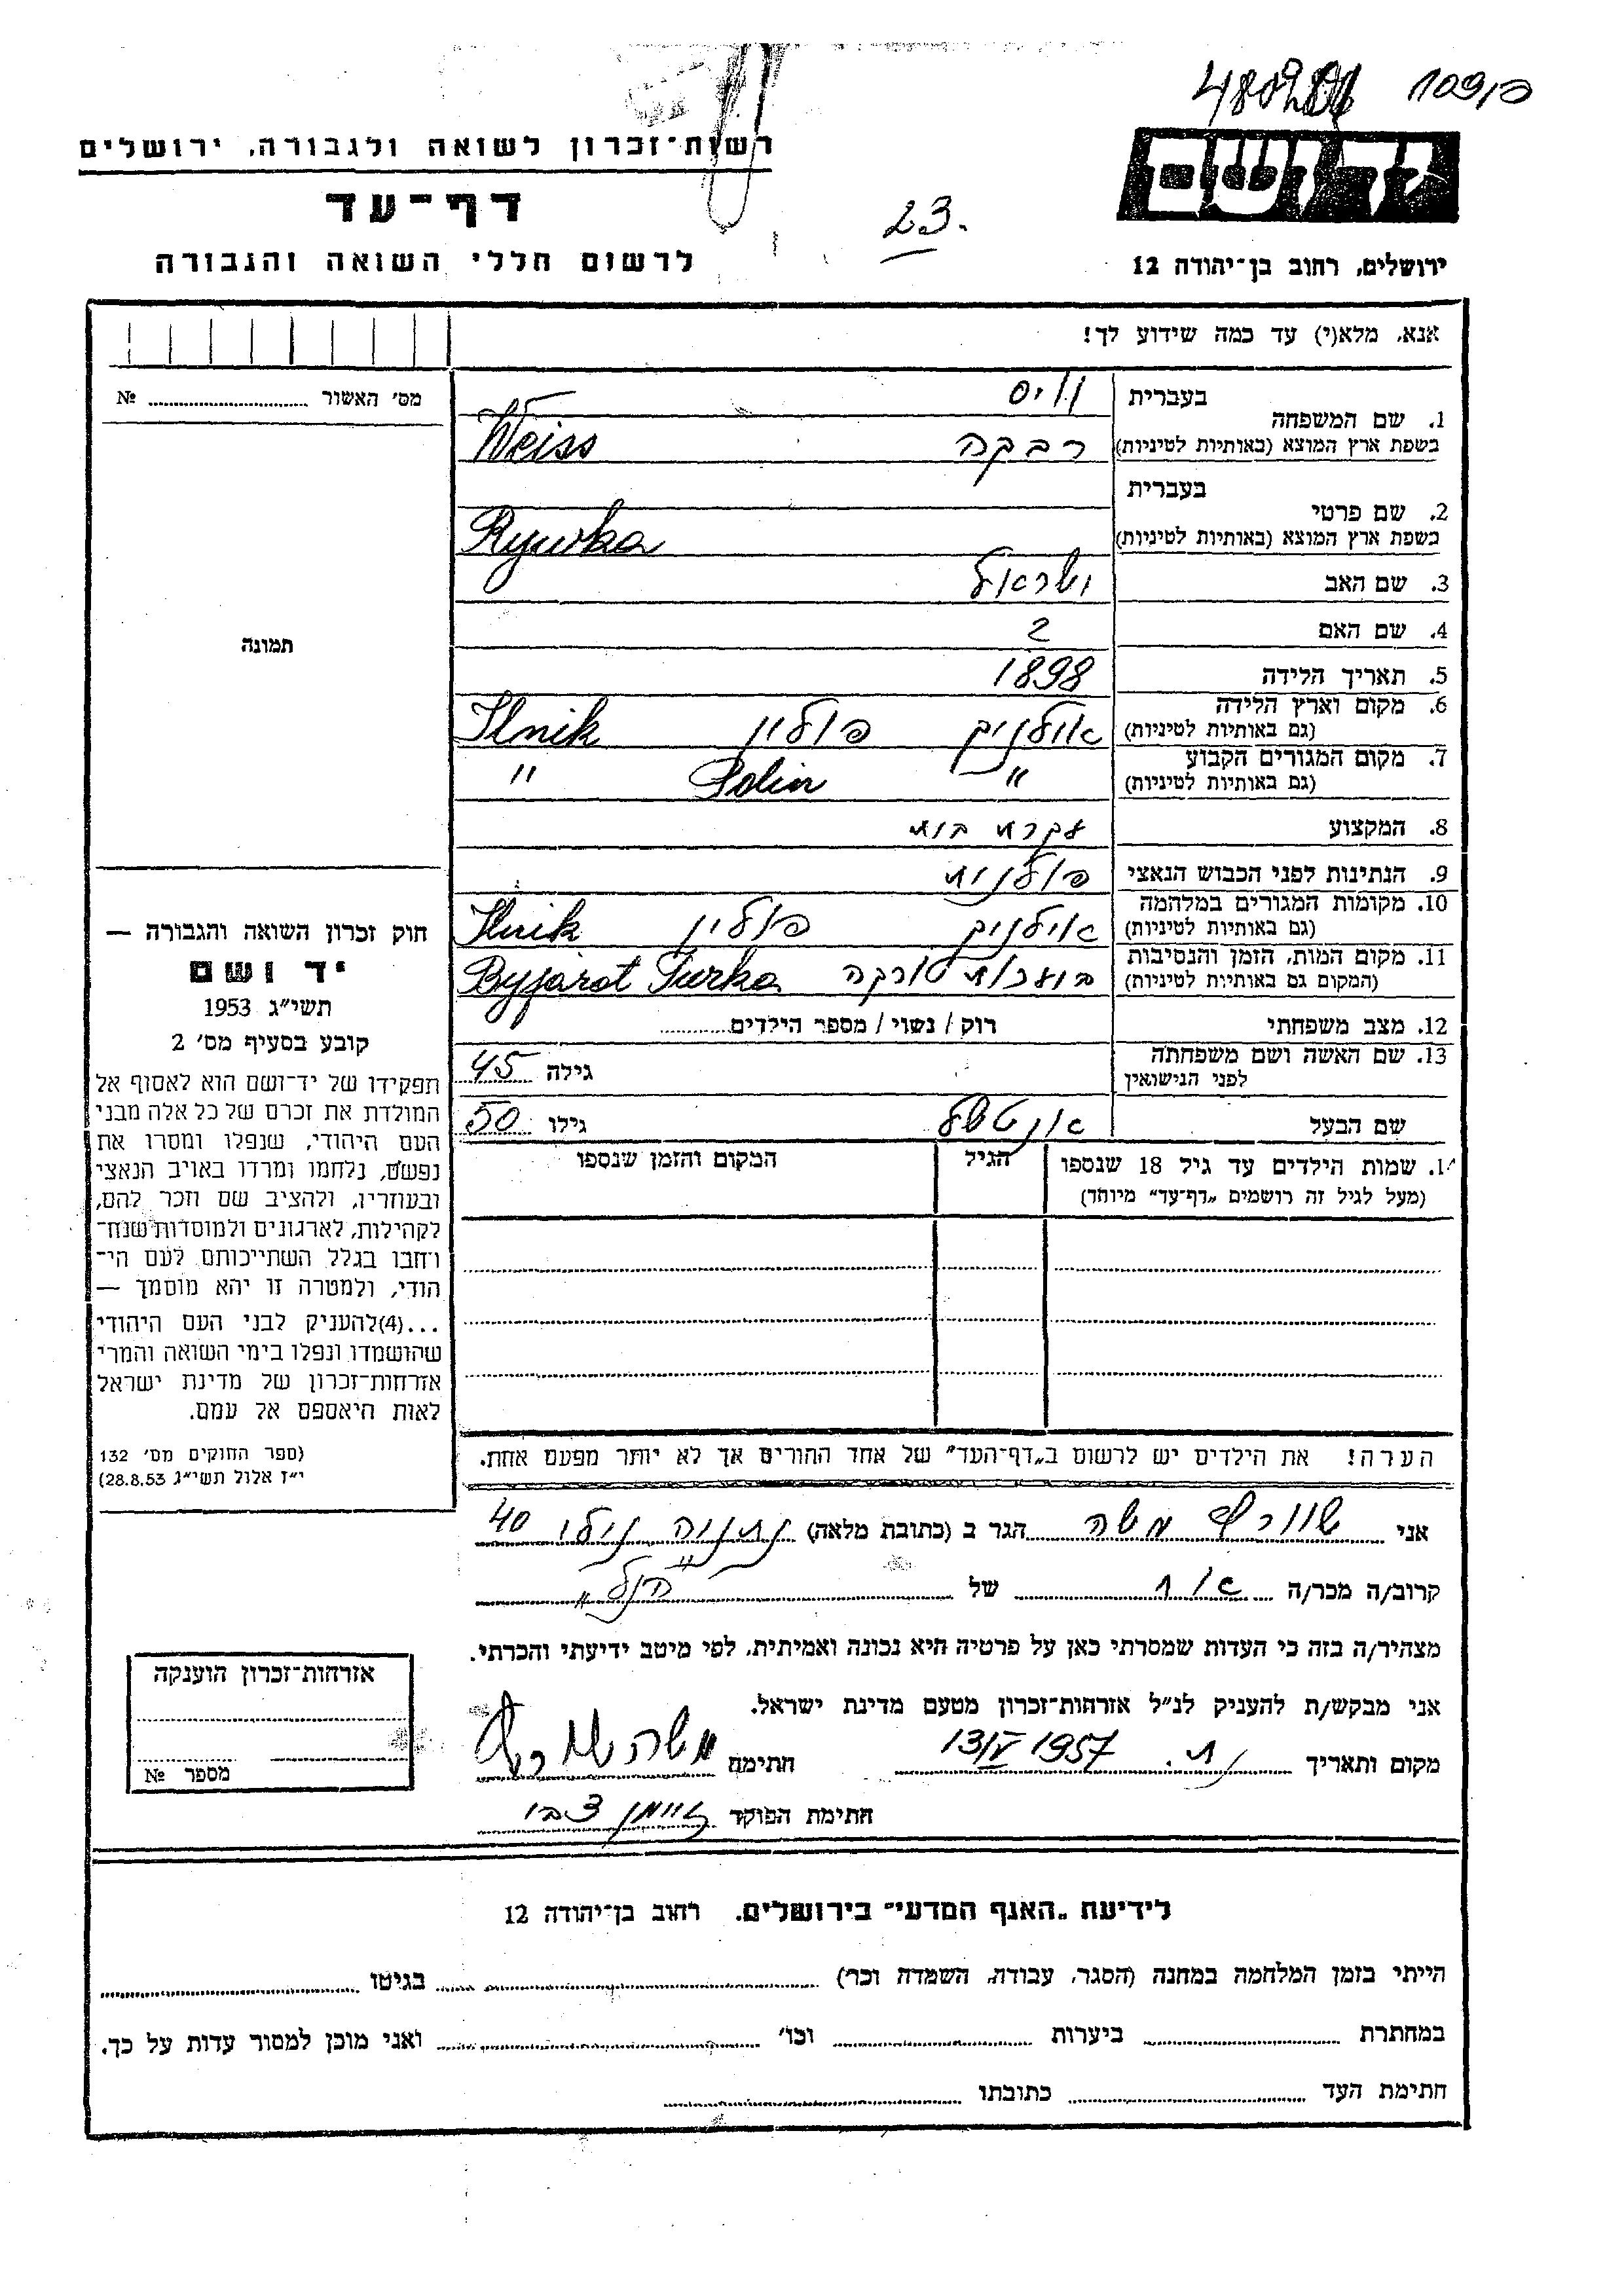 109/פ
רשות־זכרון לשואה ולגבורה, ירושלים
דף־עד
לרשום חללי השואה והגבורה
23.
יד ושם
ירושלים, רחוב בן־יהודה 12
אנא, מלא(י) עד כמה שידוע לך!
מס׳ האשור № ........
1. שם המשפחה
בעברית ווייס
בשפת ארץ המוצא (באותיות לטיניות) רבקה Weiss
2. שם פרטי
בעברית
בשפת ארץ המוצא (באותיות לטיניות) Rywka
3. שם האב ישראל
4. שם האם ?
5. תאריך הלידה 1898
6. מקום וארץ הלידה
(גם באותיות לטיניות) אילניק פולין Ilnik
7. מקום המגורים הקבוע
(גם באותיות לטיניות) " Polin "
8. המקצוע עקרת בית
9. הנתינות לפני הכבוש הנאצי פולנית
10. מקומות המגורים במלחמה
(גם באותיות לטיניות) אילניק פולין Ilnik
11. מקום המות, הזמן והנסיבות
(המקום גם באותיות לטיניות) ביערות טורקה Byjarot Turka
12. מצב משפחתי רוק / נשוי / מספר הילדים........
13. שם האשה ושם משפחתה
לפני הנישואין גילה 45
שם הבעל אנטשל גילו 50
14. שמות הילדים עד גיל 18 שנספו הגיל המקום והזמן שנספו
(מעל לגיל זה רושמים „דף־עד" מיוחד)
תמונה
חוק זכרון השואה והגבורה —
יד ושם
תשי״ג 1953
קובע בסעיף מס׳ 2
תפקידו של יד־ושם הוא לאסוף אל
המולדת את זכרם של כל אלה מבני
העם היהודי, שנפלו ומסרו את
נפשם, נלחמו ומרדו באויב הנאצי
ובעוזריו, ולהציב שם וזכר להם,
לקהילות, לארגונים ולמוסדות שנח־
רבו בגלל השתייכותם לעם הי־
הודי, ולמטרה זו יהא מוסמך —
...(4)להעניק לבני העם היהודי
שהושמדו ונפלו בימי השואה והמרי
אזרחות־זכרון של מדינת ישראל
לאות היאספם אל עמם.
(ספר החוקים מס׳ 132
י״ז אלול תשי״ג 28.8.53)
הערה! את הילדים יש לרשום ב„דף־העד" של אחד ההורים אך לא יותר מפעם אחת.
אני שוורץ משה הגר ב (כתובת מלאה) נתניה 40
קרוב/ה מכר/ה אח של הנ"ל
מצהיר/ה בזה כי העדות שמסרתי כאן על פרטיה היא נכונה ואמיתית, לפי מיטב ידיעתי והכרתי.
אני מבקש/ת להעניק לנ״ל אזרחות־זכרון מטעם מדינת ישראל.
מקום ותאריך נת. 13/V 1957 חתימה משה שוורץ
חתימת הפוקד זיימן צבי
אזרחות־זכרון הוענקה
מספר №
לידיעת „האגף המדעי" בירושלים, רחוב בן־יהודה 12
הייתי בזמן המלחמה במחנה (הסגר, עבודה, השמדה וכר׳) ........ בגיטו ........
במחתרת ........ ביערות ........ וכו׳ ........ ואני מוכן למסור עדות על כך.
חתימת העד ........ כתובתו ........